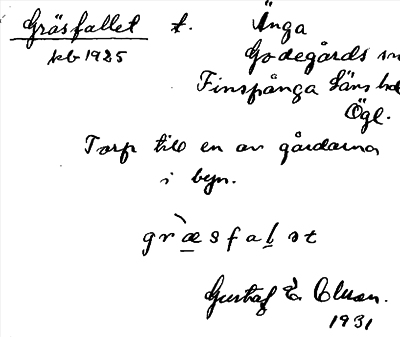 Gräsfallet t. Änga
kb 1925 Godegårds sn
Finspånga läns hd
Ögl.
Torp till en av gårdarna
i byn.
gr̀æsfalst
Gustaf E. Olson.
1931